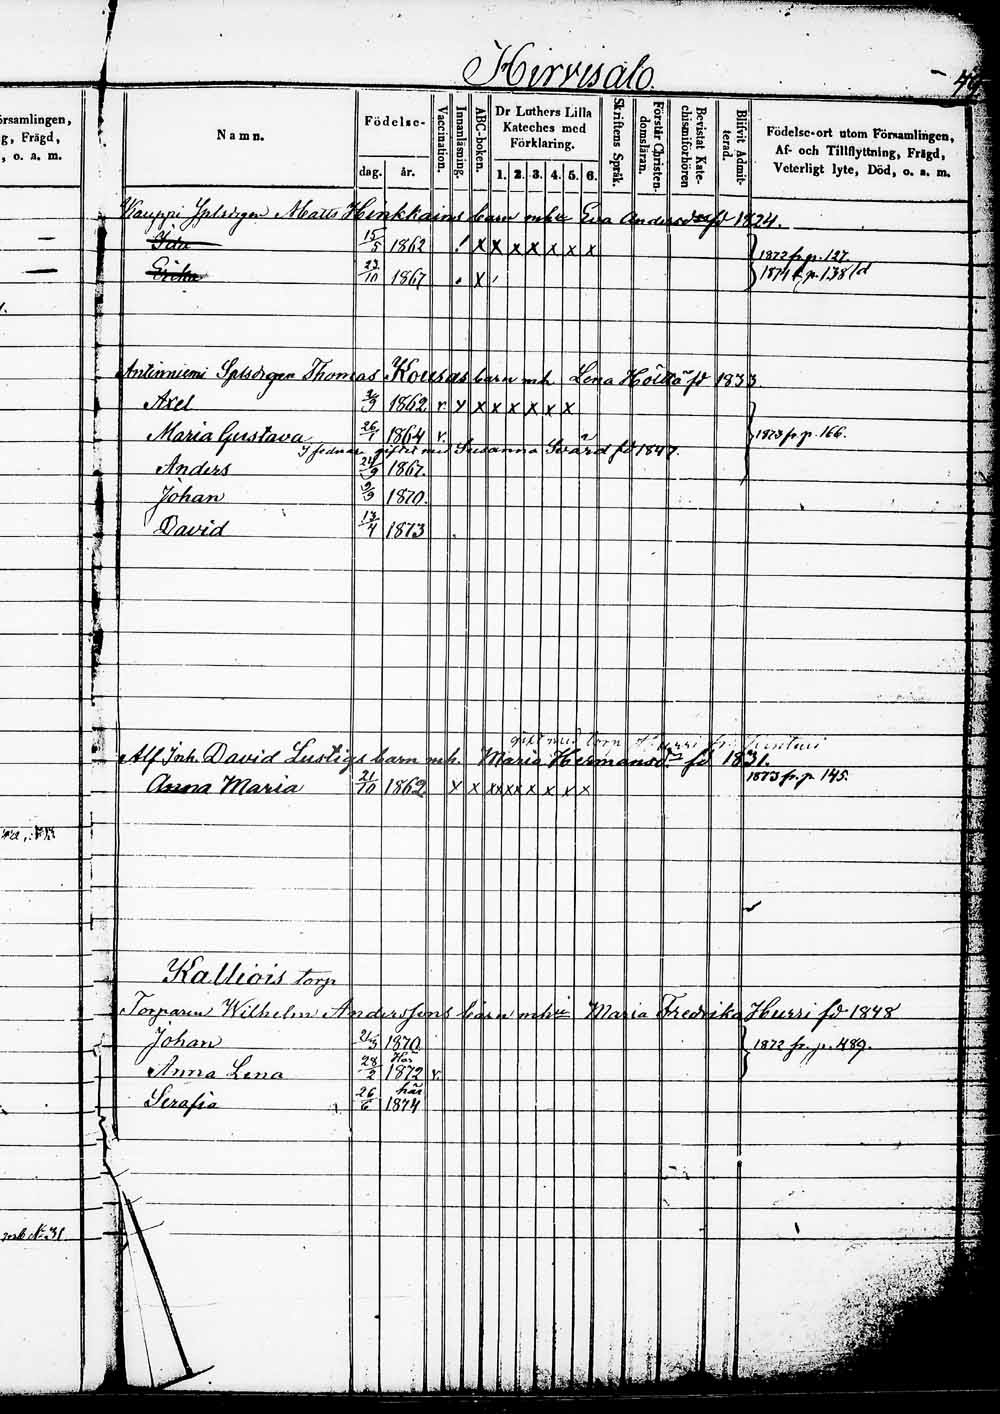 Hirvisalo.
Namn.
Födelse-
dag. år.
Vaccination.
Innanläsning.
ABC-boken.
Dr Luthers Lilla
Kateches med
Förklaring.
1. 2. 3. 4. 5. 6.
Skriftens Språk.
Förstår Christen-
domsläran.
Bevistat Kate-
chismiförhören
Blifvit Admit-
terad.
Födelse-ort utom Församlingen,
Af- och Tillflyttning, Frägd,
Veterligt lyte, Död, o. a. m.
örsamlingen,
g, Frägd,
, o. a. m.
Matts Hinkkains barn mh Eva Andersd fd 1824.
Ida 15/5 1862 x x x x x x x 1872 fr p. 127
Erika 23/10 1867 x 1874 p. 138
Antinniemi Thomas Kousas barn mh. Lena fd 1833.
Axel 1862 v. x x x x x x x
Maria Gustava 26/1 1864 v. 1873 fr p. 166.
giftet med Susanna Svärd fd 1847.
Anders 1867.
Johan 9/9 1870.
David 13/4 1873
gift med torp
Joh. David Lustigs barn mh. Maria Hermansd fd 1831.
Anna Maria 21/10 1862 x x x x x x x x x x 1873 fr p. 145.
Kalliois torp
Torparen Wilhelm Anderssons barn mh Maria Fredrika Hurri fd 1848
Johan 1870 1872 fr. p. 489.
här
Anna Lena 28/2 1872 v.
här
Serafia 26/6 1874
No 31